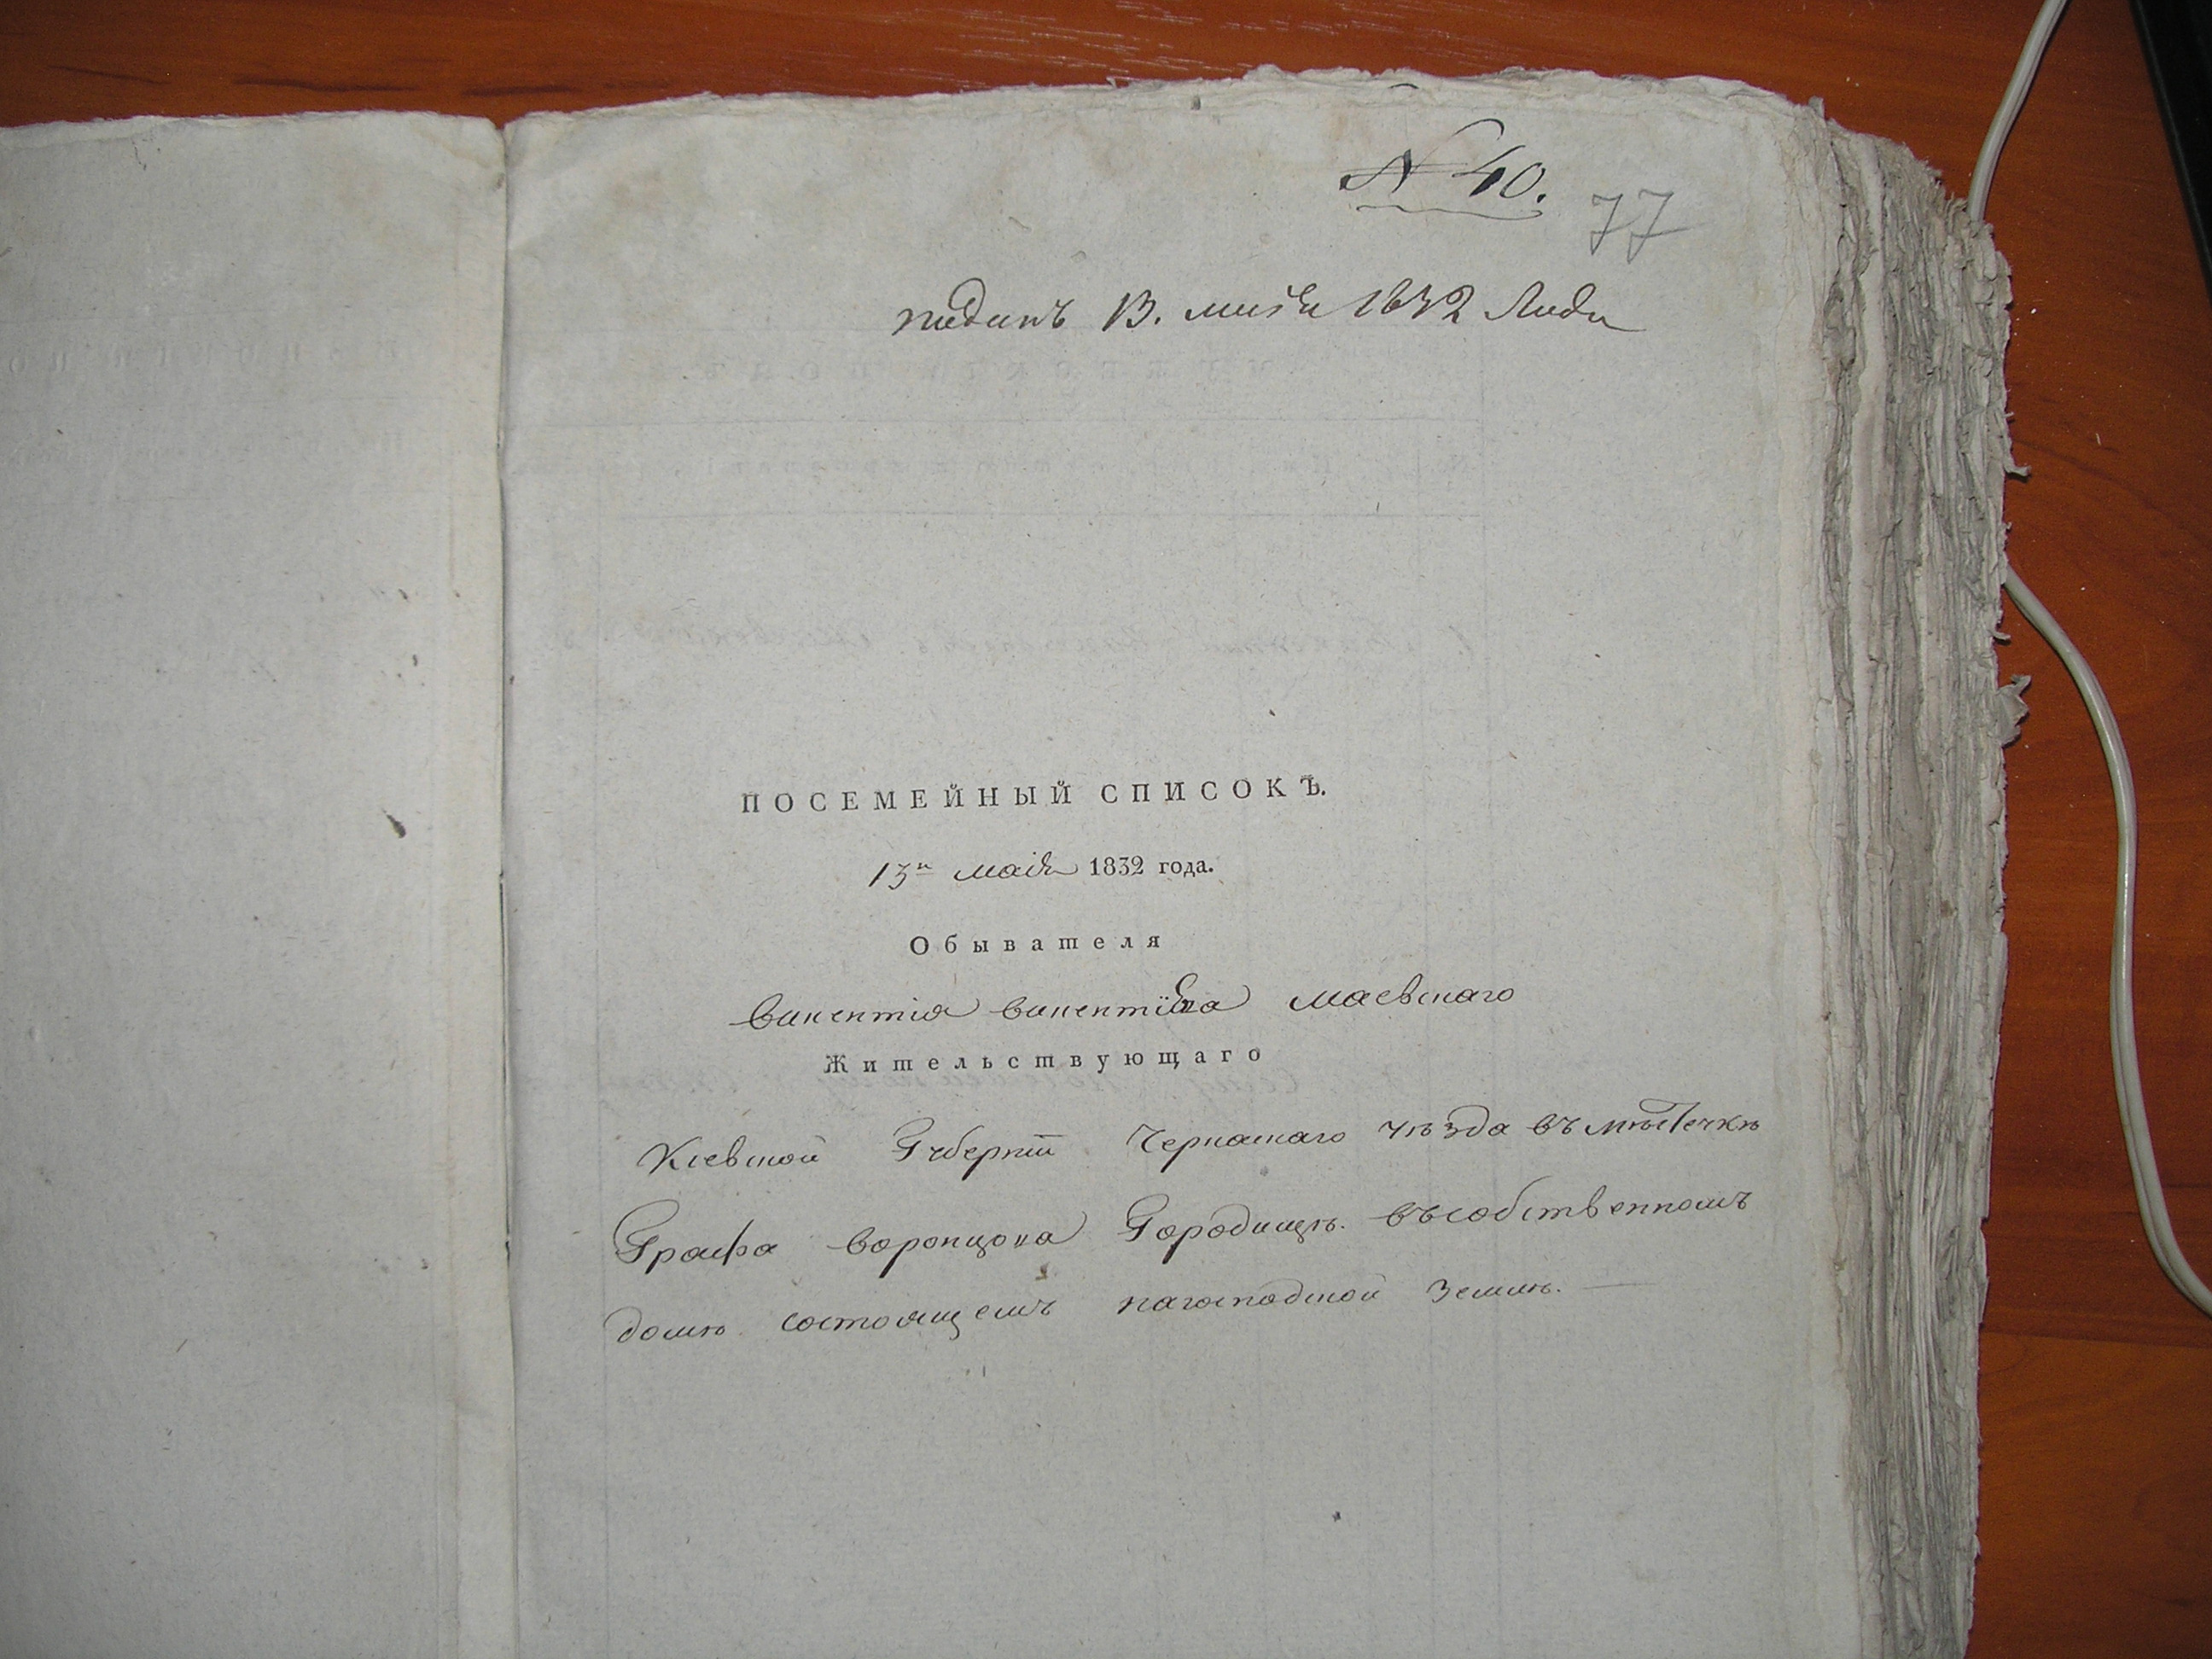 № 40.
77
поданъ 13. маія 1832 года
ПОСЕМЕЙНЫЙ СПИСОКЪ.
13го маія 1832 года.
Обывателя
Викентія Викентіева Маевскаго
Жительствующаго
Кіевской Губерніи Черкаскаго уѣзда въ мѣстечкѣ
Графа Воронцова Городищѣ. въ собственномъ
домѣ состоящемъ на господской землѣ. —